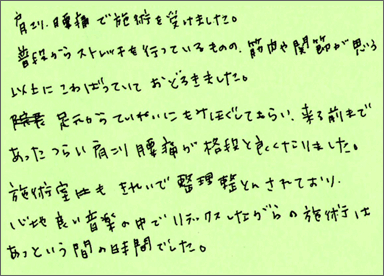 肩こり、腰痛で施術を受けました。
普段からストレッチを行っているものの、筋肉や関節が思う
以上にこわばっていておどろきました。
足元からていねいにもみほぐしてもらい、来る前まで
あったつらい肩こり腰痛が格段と良くなりました。
施術室もきれいで整理整とんされており、
心地良い音楽の中でリラックスしながらの施術は
あっという間の時間でした。